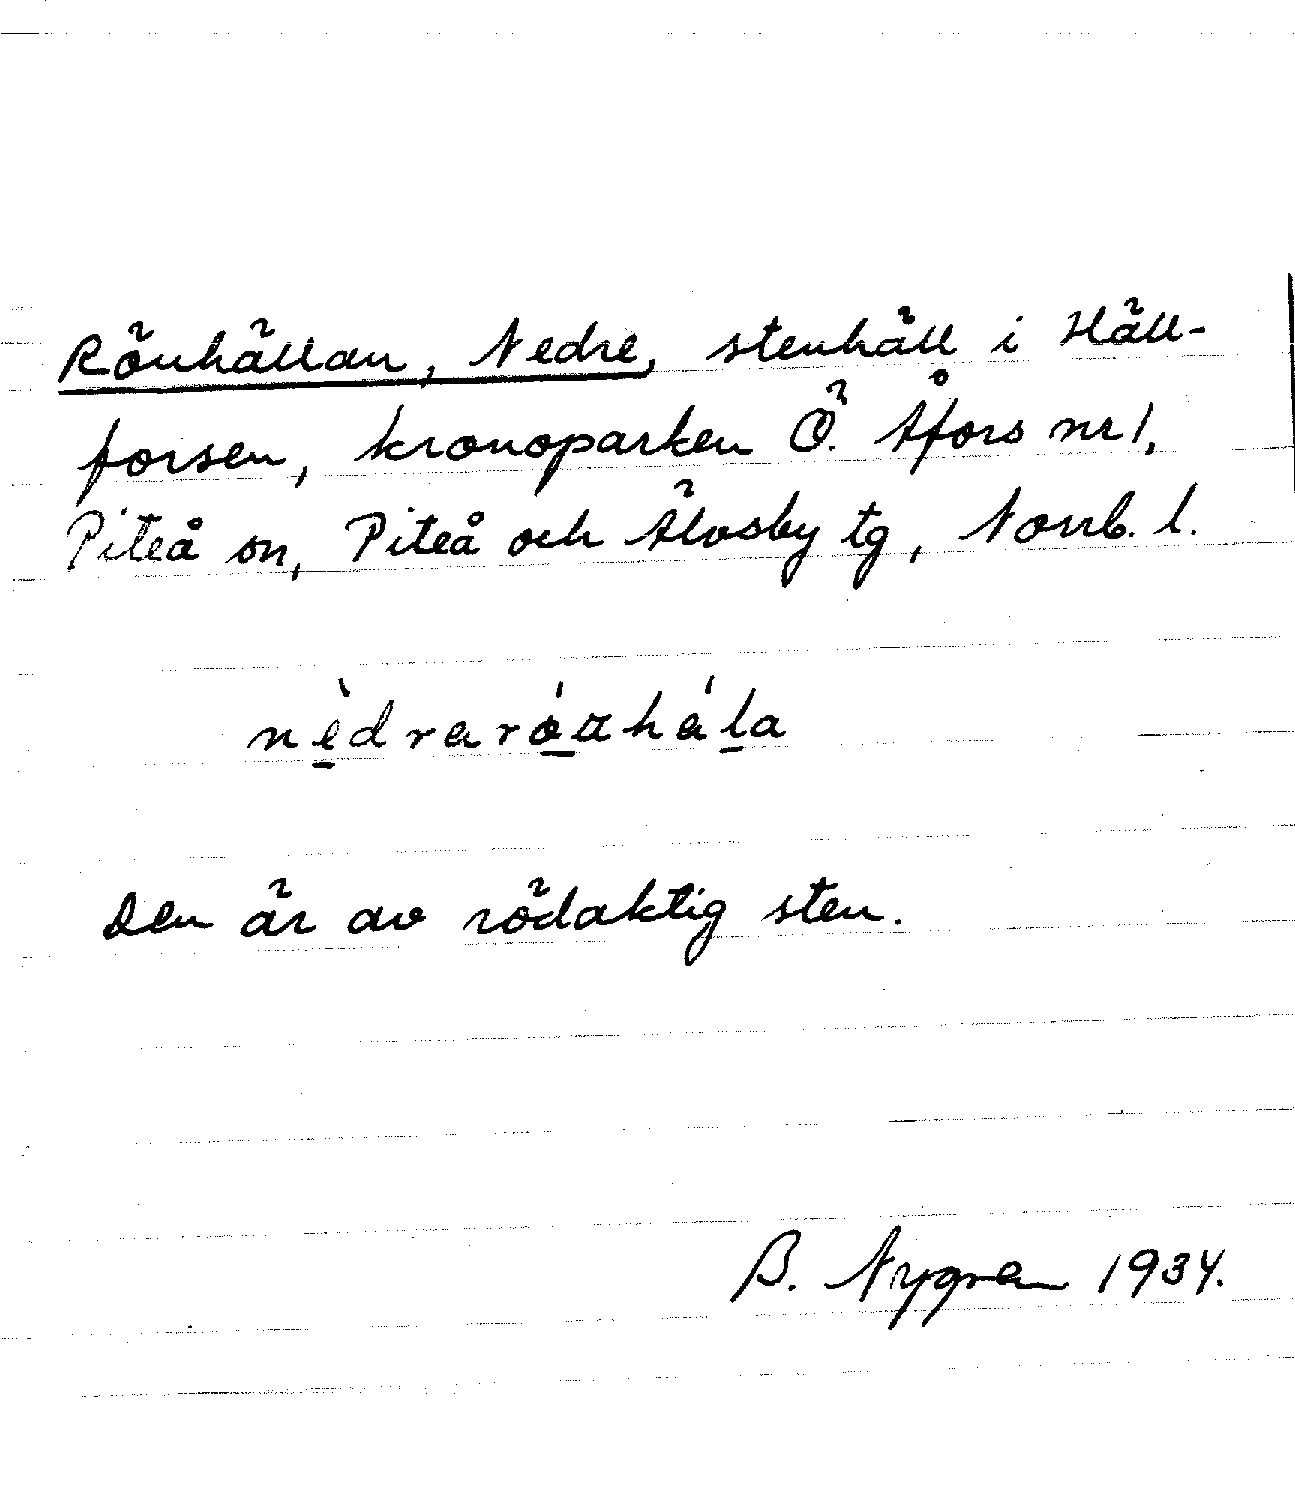 Rönhällan, Nedre, stenhäll i Häll-
forsen, kronoparken Ö. Åfors nr 1,
Piteå sn, Piteå och Älvsby tg, Norrb. l.
Den är av rödaktig sten.
B. Nygren 1934.